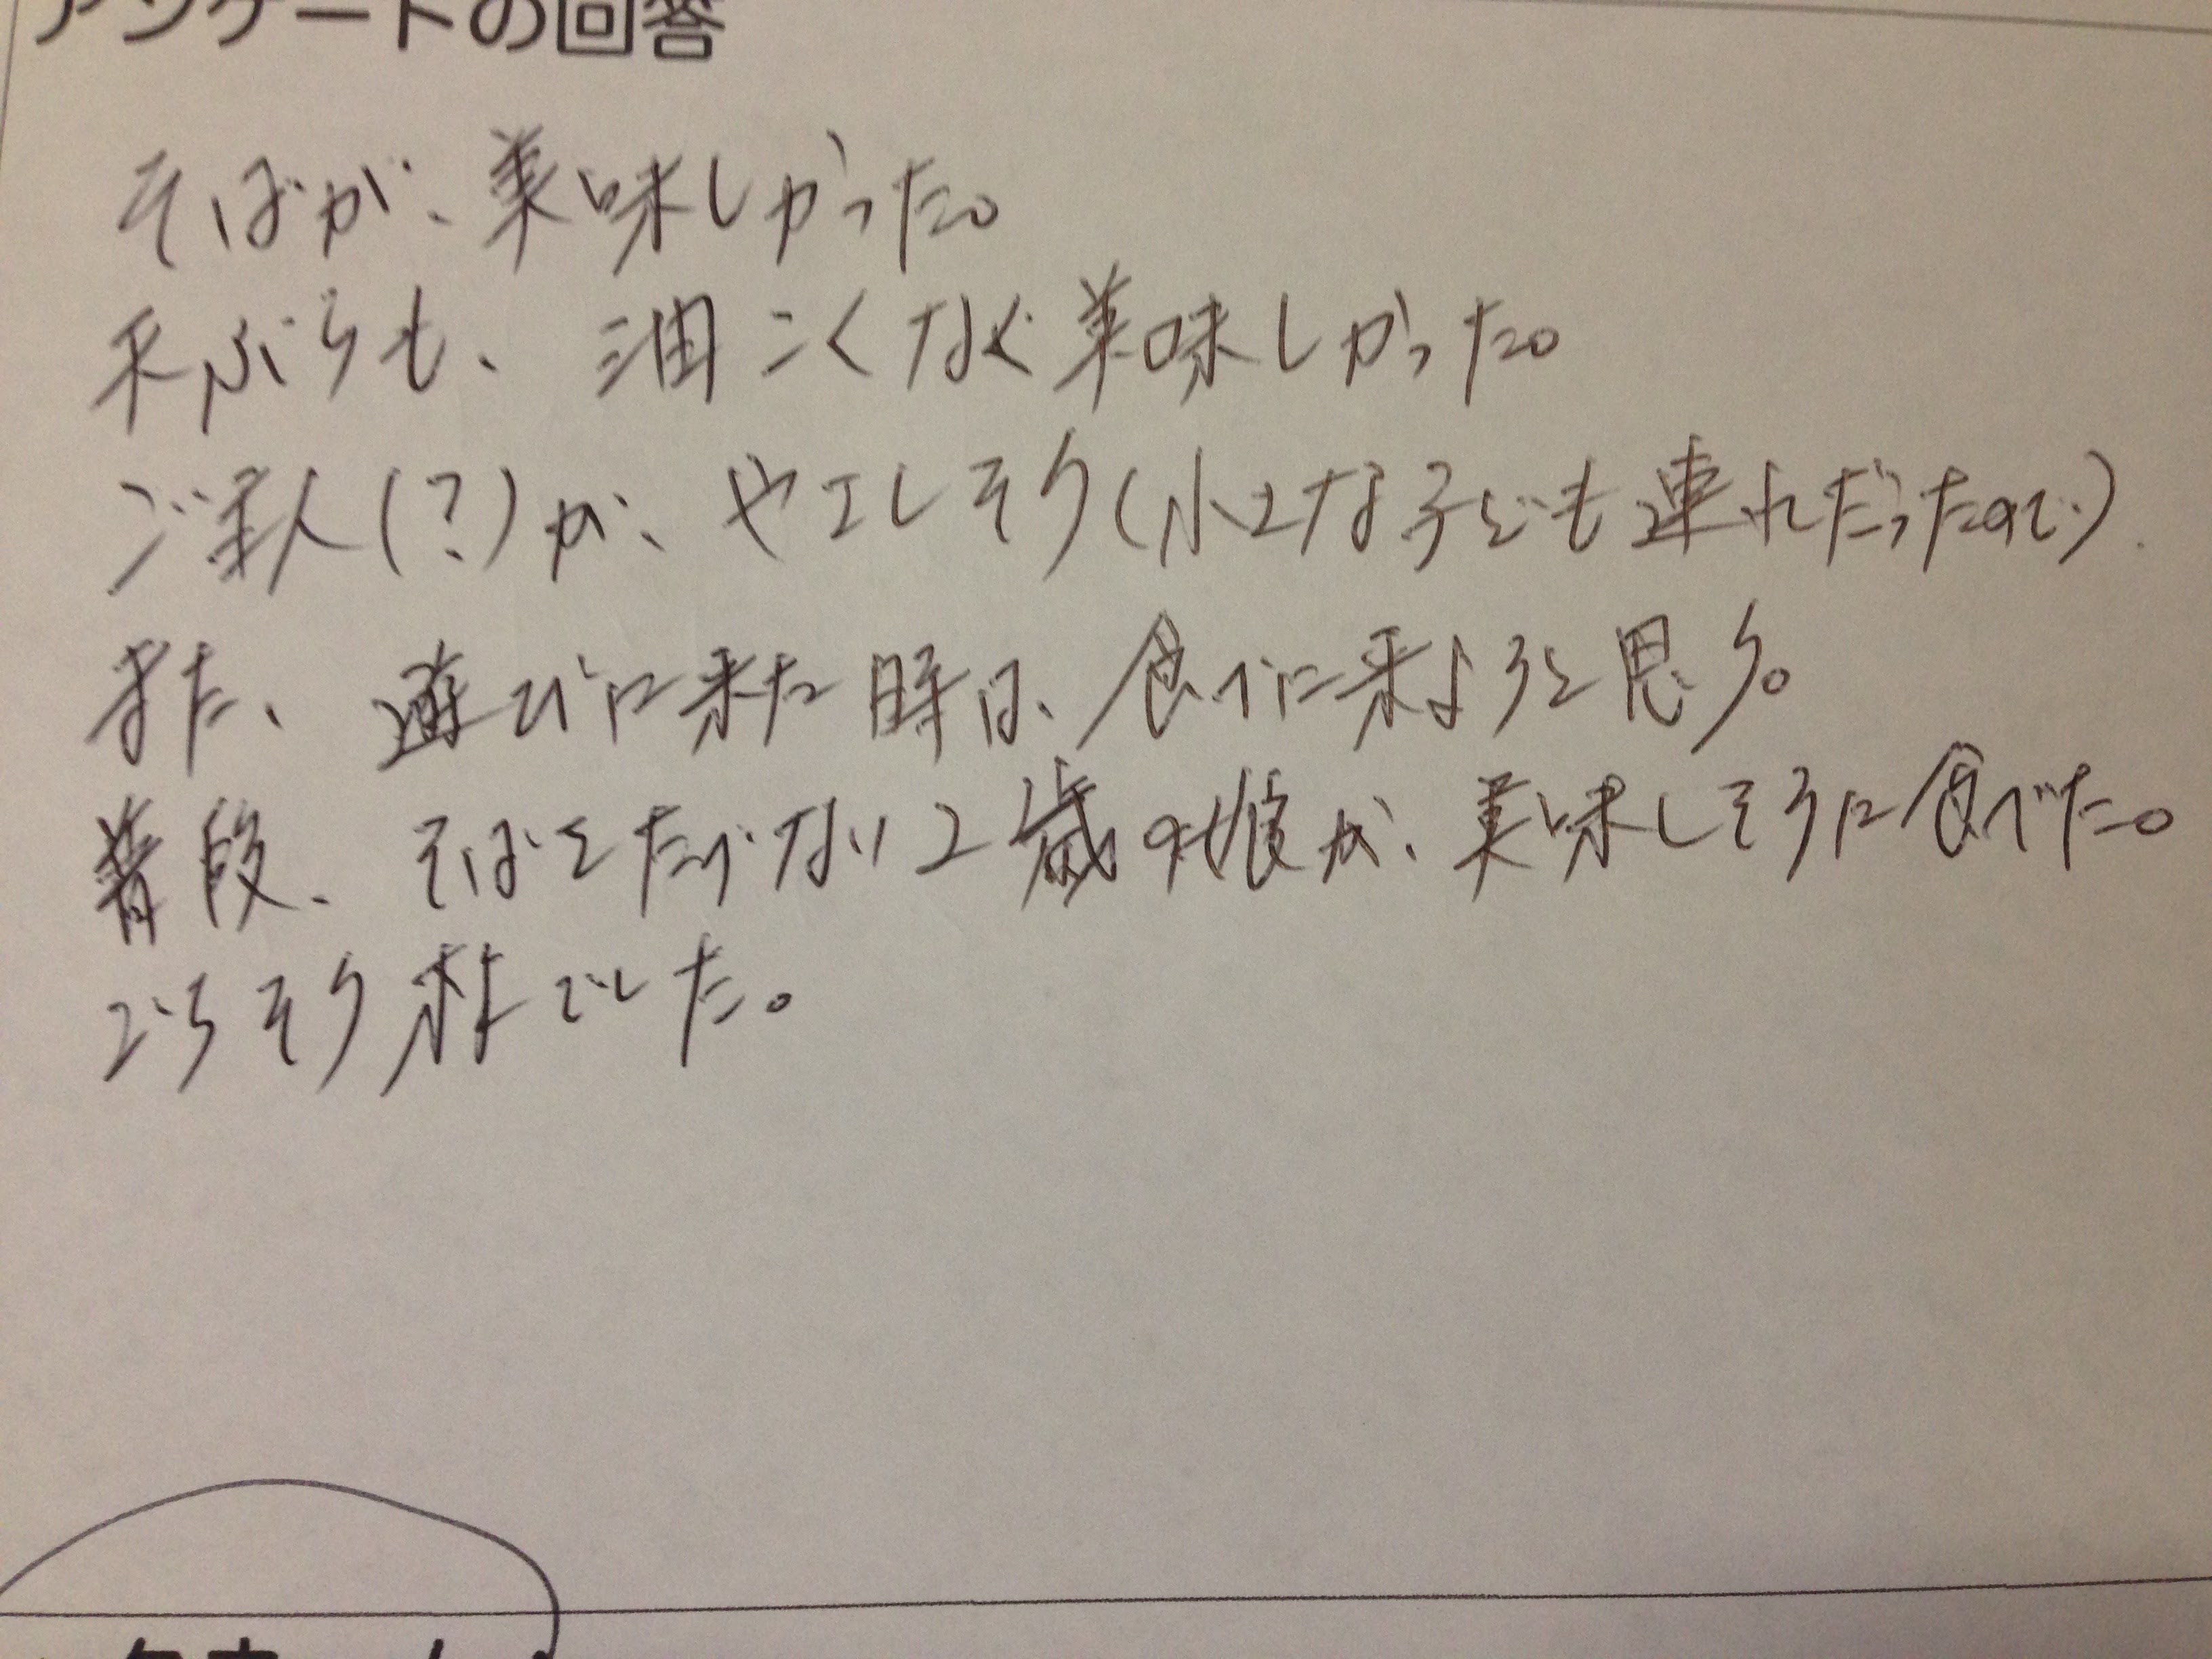 アンケートの回答
そばが、美味しかった。
天ぷらも、油こくなく美味しかった。
ご主人(?)が、やさしそう(小さな子ども連れだったので)
また、遊びに来た時は、食べに来ようと思う。
普段、そばをたべない2歳の娘が、美味しそうに食べた。
ごちそう様でした。